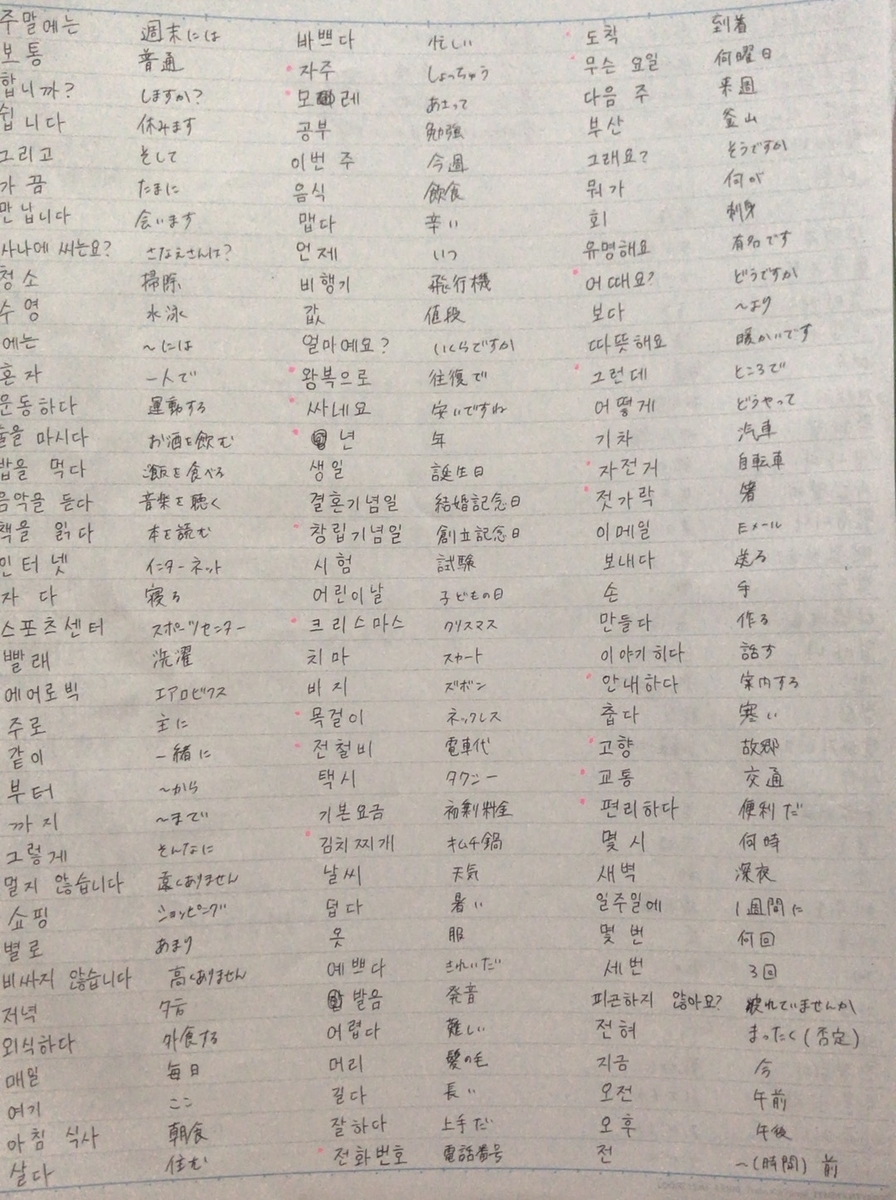 주말에는 週末には
보통 普通
합니까? しますか?
쉽니다 休みます
그리고 そして
가끔 たまに
만납니다 会います
사나에 씨는요? さなえさんは?
청소 掃除
수영 水泳
에는 ~には
혼자 一人で
운동하다 運動する
술을 마시다 お酒を飲む
밥을 먹다 ご飯を食べる
음악을 듣다 音楽を聴く
책을 읽다 本を読む
인터넷 インターネット
자다 寝る
스포츠센터 スポーツセンター
빨래 洗濯
에어로빅 エアロビクス
주로 主に
같이 一緒に
부터 ~から
까지 ~まで
그렇게 そんなに
멀지 않습니다 遠くありません
쇼핑 ショッピング
별로 あまり
비싸지 않습니다 高くありません
저녁 夕方
외식하다 外食する
매일 毎日
여기 ここ
아침 식사 朝食
살다 住む
바쁘다 忙しい
자주 しょっちゅう
모레 あさって
공부 勉強
이번 주 今週
음식 飲食
맵다 辛い
언제 いつ
비행기 飛行機
값 値段
얼마예요? いくらですか
왕복으로 往復で
싸네요 安いですね
년 年
생일 誕生日
결혼기념일 結婚記念日
창립기념일 創立記念日
시험 試験
어린이날 子どもの日
크리스마스 クリスマス
치마 スカート
비지 ズボン
목걸이 ネックレス
전철비 電車代
택시 タクシー
기본요금 初乗料金
김치찌개 キムチ鍋
날씨 天気
덥다 暑い
옷 服
예쁘다 きれいだ
발음 発音
어렵다 難しい
머리 髪の毛
길다 長い
잘하다 上手だ
전화번호 電話番号
도착 到着
무슨 요일 何曜日
다음 주 来週
부산 釜山
그래요? そうですか
뭐가 何が
회 刺身
유명해요 有名です
어때요? どうですか
보다 ~より
따뜻해요 暖かいです
그런데 ところで
어떻게 どうやって
기차 汽車
자전거 自転車
젓가락 箸
이메일 Eメール
보내다 送る
손 手
만들다 作る
이야기히다 話す
안내하다 案内する
춥다 寒い
고향 故郷
교통 交通
편리하다 便利だ
몇 시 何時
새벽 深夜
일주일에 1週間に
몇 번 何回
세 번 3回
피곤하지 않아요? 疲れていませんか
전혀 まったく(否定)
지금 今
오전 午前
오후 午後
전 ~(時間)前